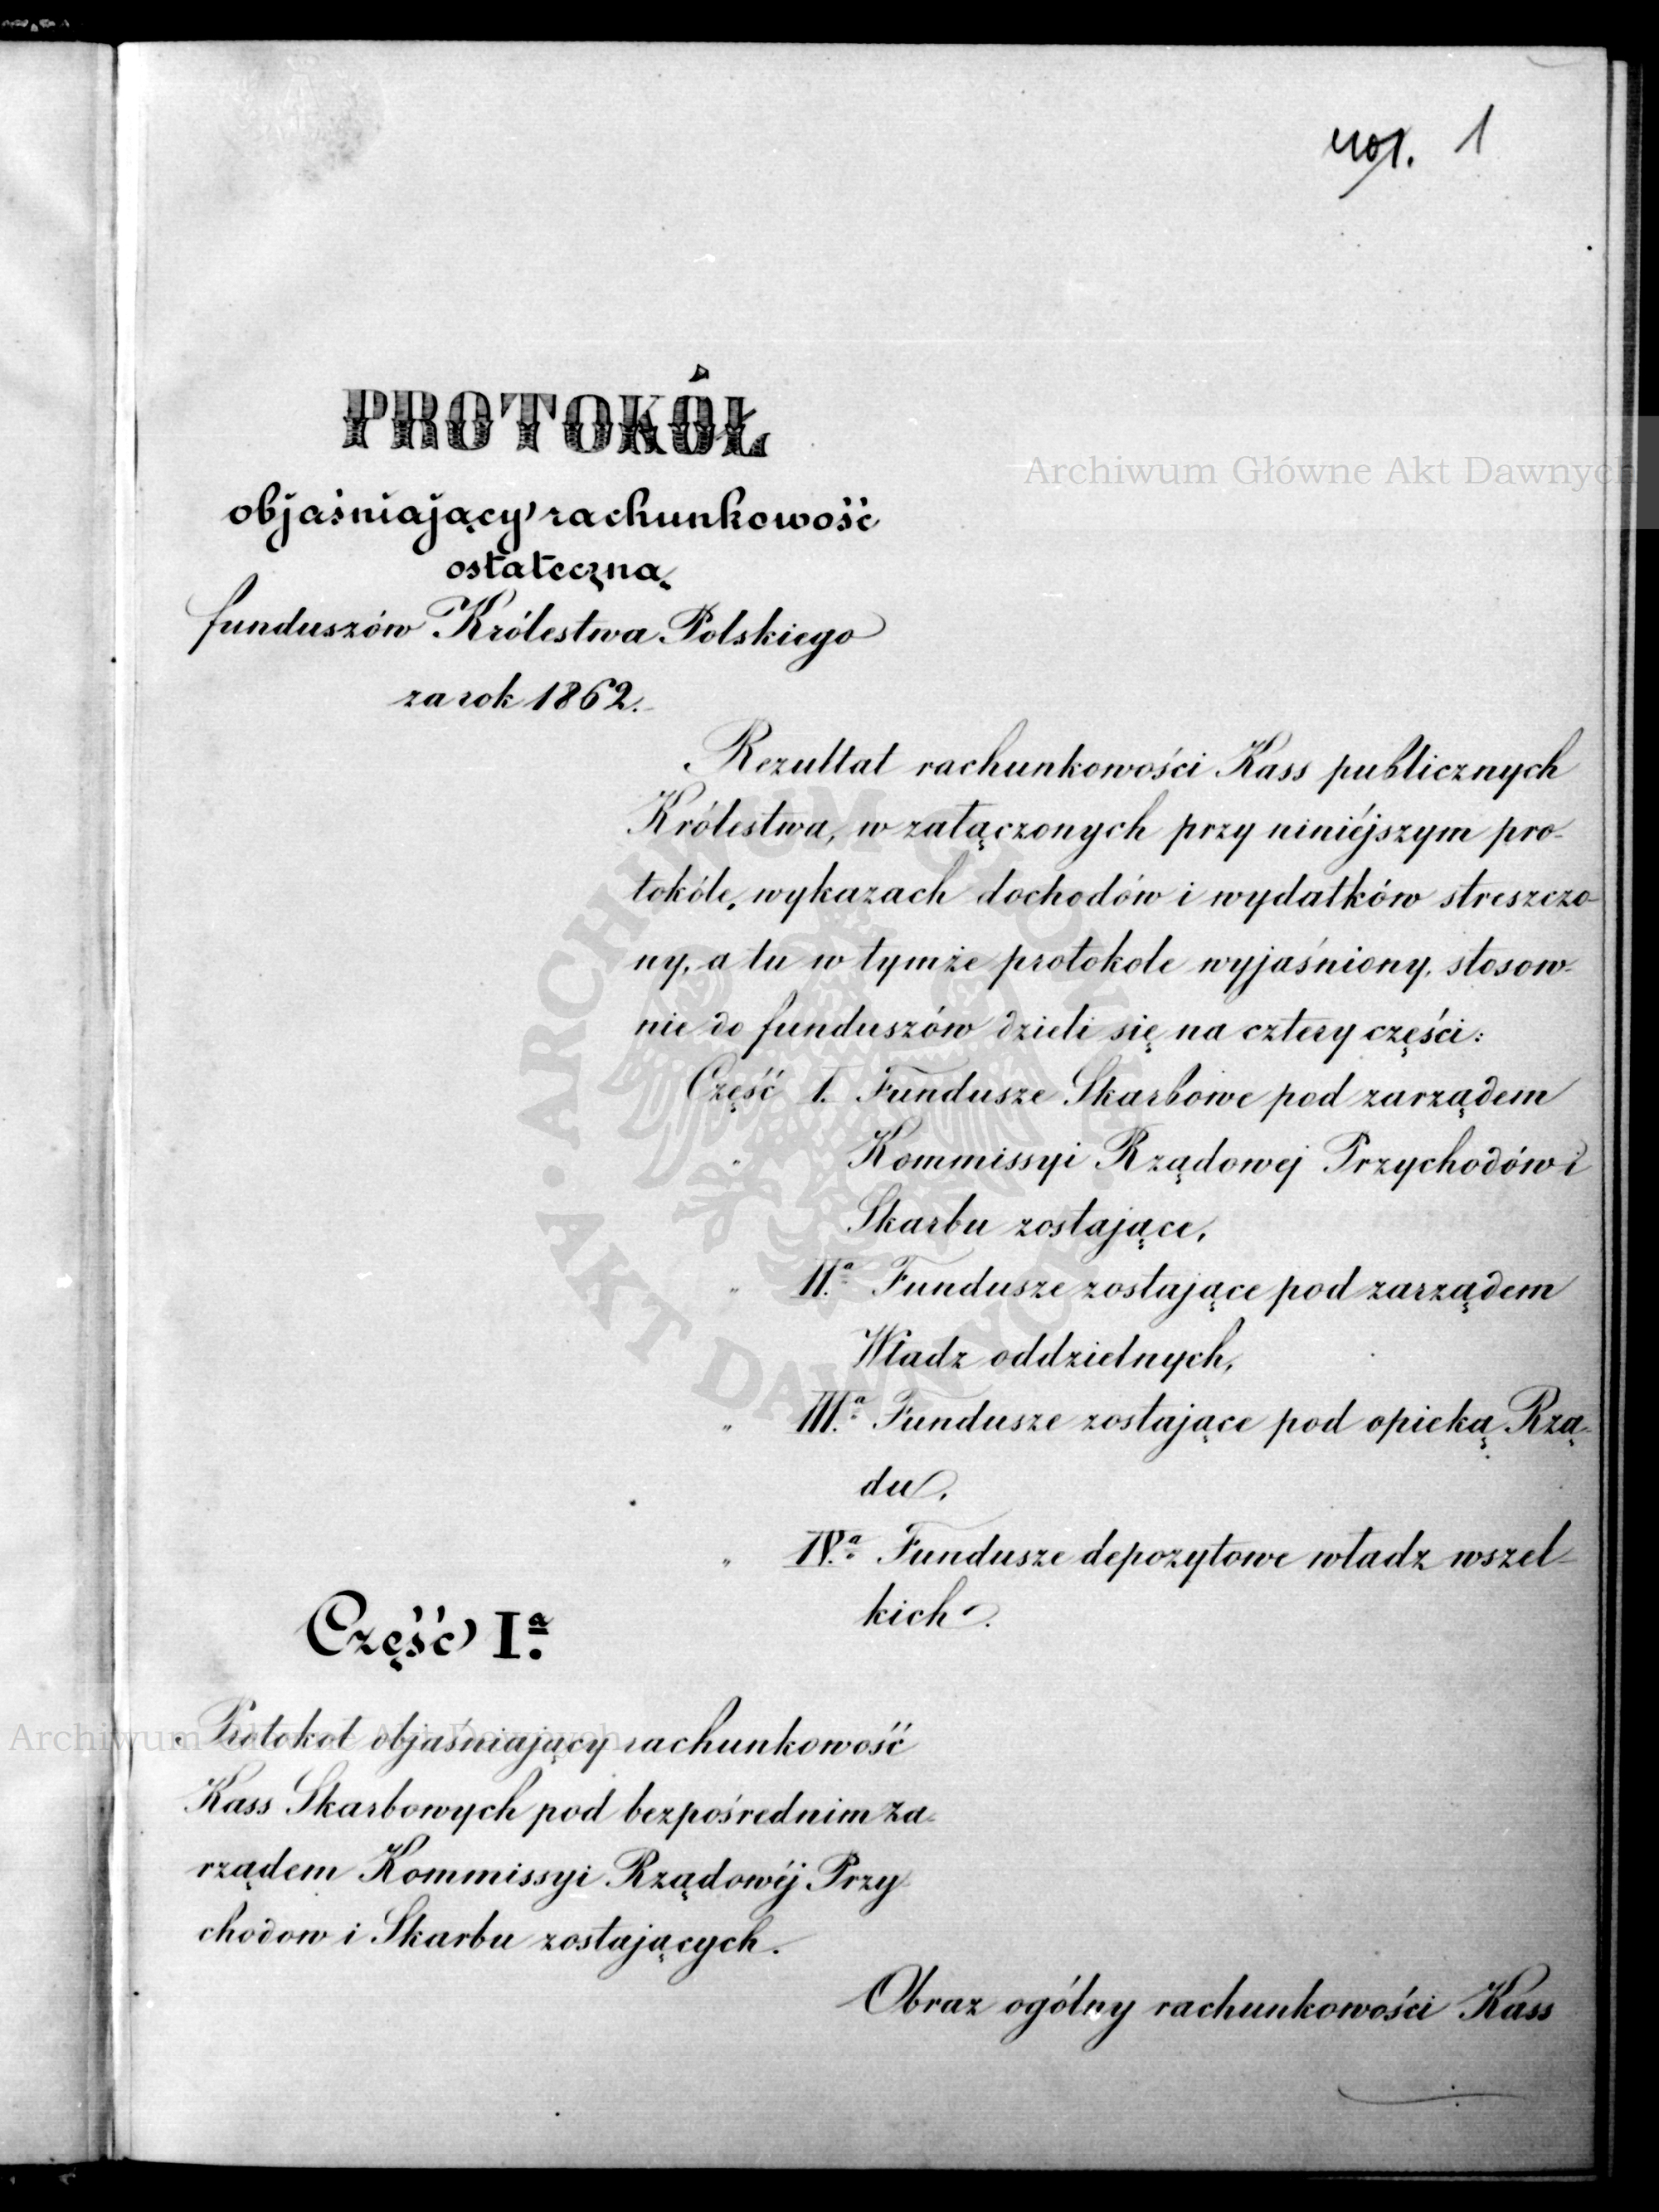 1
PROTOKÓŁ
objaśniający rachunkowość
ostateczną
funduszów Królestwa Polskiego
za rok 1862.
Rezultat rachunkowości Kass publicznych
Królestwa, w załączonych przy niniéjszym pro-
tokóle, wykazach dochodów i wydatków streszczo-
ny, a tu w tymże protokole wyjaśniony, stosow-
nie do funduszów dzieli się na cztery części:
Część I. Fundusze Skarbowe pod zarządem
" Kommissyi Rządowej Przychodów i
Skarbu zostające,
" II.ª Fundusze zostające pod zarządem
Władz oddzielnych,
" III.ª Fundusze zostające pod opieką Rzą-
du,
" IV.ª Fundusze depozytowe władz wszel-
kich.
Część Iª.
Protokół objaśniający rachunkowość
Kass Skarbowych pod bezpośrednim za-
rządem Kommissyi Rządowéj Przy-
chodow i Skarbu zostających.
Obraz ogólny rachunkowości Kass
Archiwum Główne Akt Dawnych
Archiwum Główne Akt Dawnych
ARCHIWUM GŁÓWNE
AKT DAWNYCH